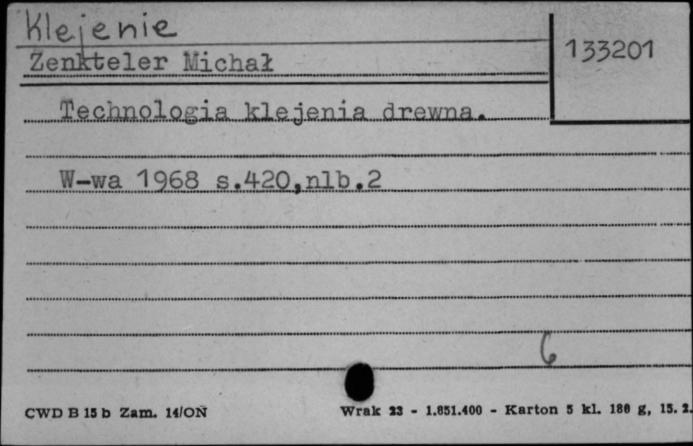 Klejenie
133201
Zenkteler Michał
Technologia klejenia drewna.
W-wa 1968 s.420,nlb.2
6
CWD B 15 b Zam. 14/ON Wrak 23 - 1.851.400 - Karton 5 kl. 180 g, 15. 2.